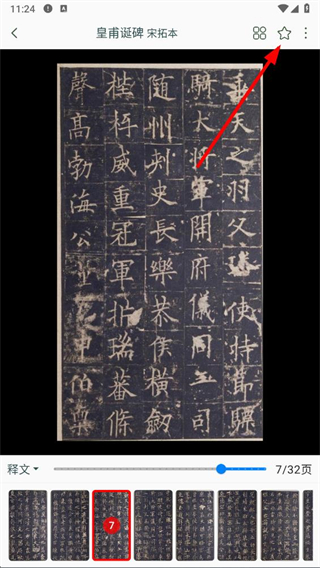 11:24
皇甫诞碑 宋拓本
垂天之羽父璠使持節驃
騎大將軍開府儀同三司
隨州刾史長樂恭侯橫劒
梐枑威重冠軍析瑞蕃條
聲高渤海公量包申伯稟
释文
7/32页
7